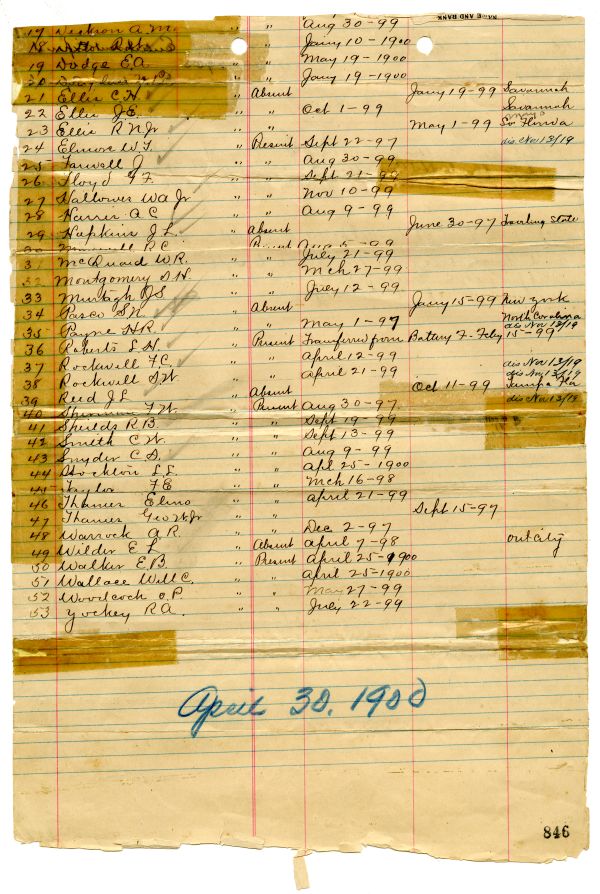 NAME AND RANK
17 Dickson A " " Aug 30-99
18 " " Jany 10-1900
19 Dodge E.A. " " May 19-1900
20 " " Jany 19-1900
21 Ellis C.H. " Absent Jany 19-99 Savannah
22 Ellis J.E. " " Oct 1-99 Savannah
23 Ellis R N Jr " " May 1-99 So Florida
24 Elmore W.T. " Present Sept 22-97 dis Nov 13/19
25 Farwell J " " Aug 30-99
26 Floyd F. " " Sept 21-99
27 Hallowes W.A. Jr " " Nov 10-99
28 A C " " Aug 9-99
29 Hopkins J L. " Absent June 30-97 State
30 R C. " Present 99
31 McQuaid W R. " " July 21-99
32 Montgomery S.H. " " Mch 27-99
33 Murtagh J S " " July 12-99
34 Pasco S.N. " Absent Jany 15-99 New York
35 Payne H R. " " May 1-97 North Carolina dis Nov 13/19
36 Roberts L H. " Present Transferred from Battery F-Feby 15-99
37 Rockwell F C. " " April 12-99 dis Nov 13/19
38 Rockwell S W. " " April 21-99 dis Nov 13/19
39 Reed J L " Absent Oct 11-99 Tampa Fla
40 Sherman F W. " Present Aug 30-97 dis Nov 13/19
41 Shields R B. " " Sept 19-99
42 Smith C W. " " Sept 13-99
43 Snyder C D. " " Aug 9-99
44 Stockton L L " " Apl 25-1900
45 Taylor F E " " Mch 16-98
46 Thames Elmo " " April 21-99
47 Thames Geo W Jr " " Sept 15-97
48 Warrock A R. " " Dec 2-97
49 Wilder E L " Absent April 7-98 out city
50 Walker E B " Present April 25-1900
51 Wallace Will C. " " April 25-1900
52 Woodcock O.P. " " May 27-99
53 Yockey R A. " " July 22-99
April 30, 1900
846